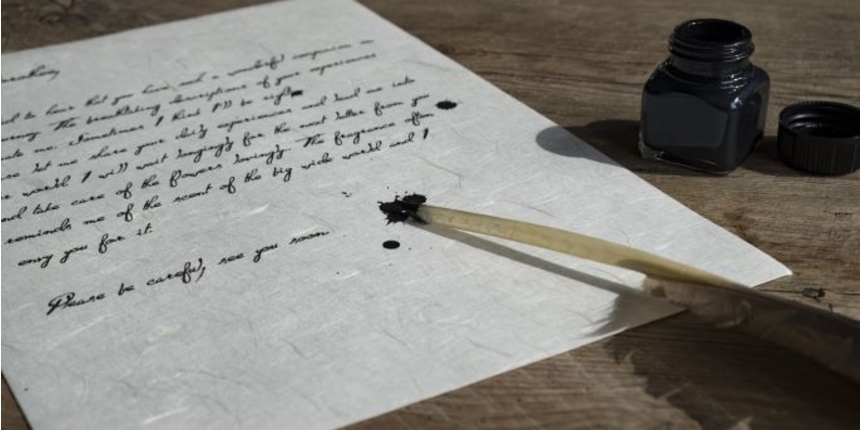 glad to hear that you have such a wonderful companion on
journey. The breathtaking descriptions of your experiences
me. Sometimes I think I'll be right
let me share your daily experiences and lead me into
world. I will wait longingly for the next letter from you
and take care of the flowers lovingly. The fragrance often
reminds me of the scent of the big wide world and I
envy you for it.
Please be careful, see you soon.